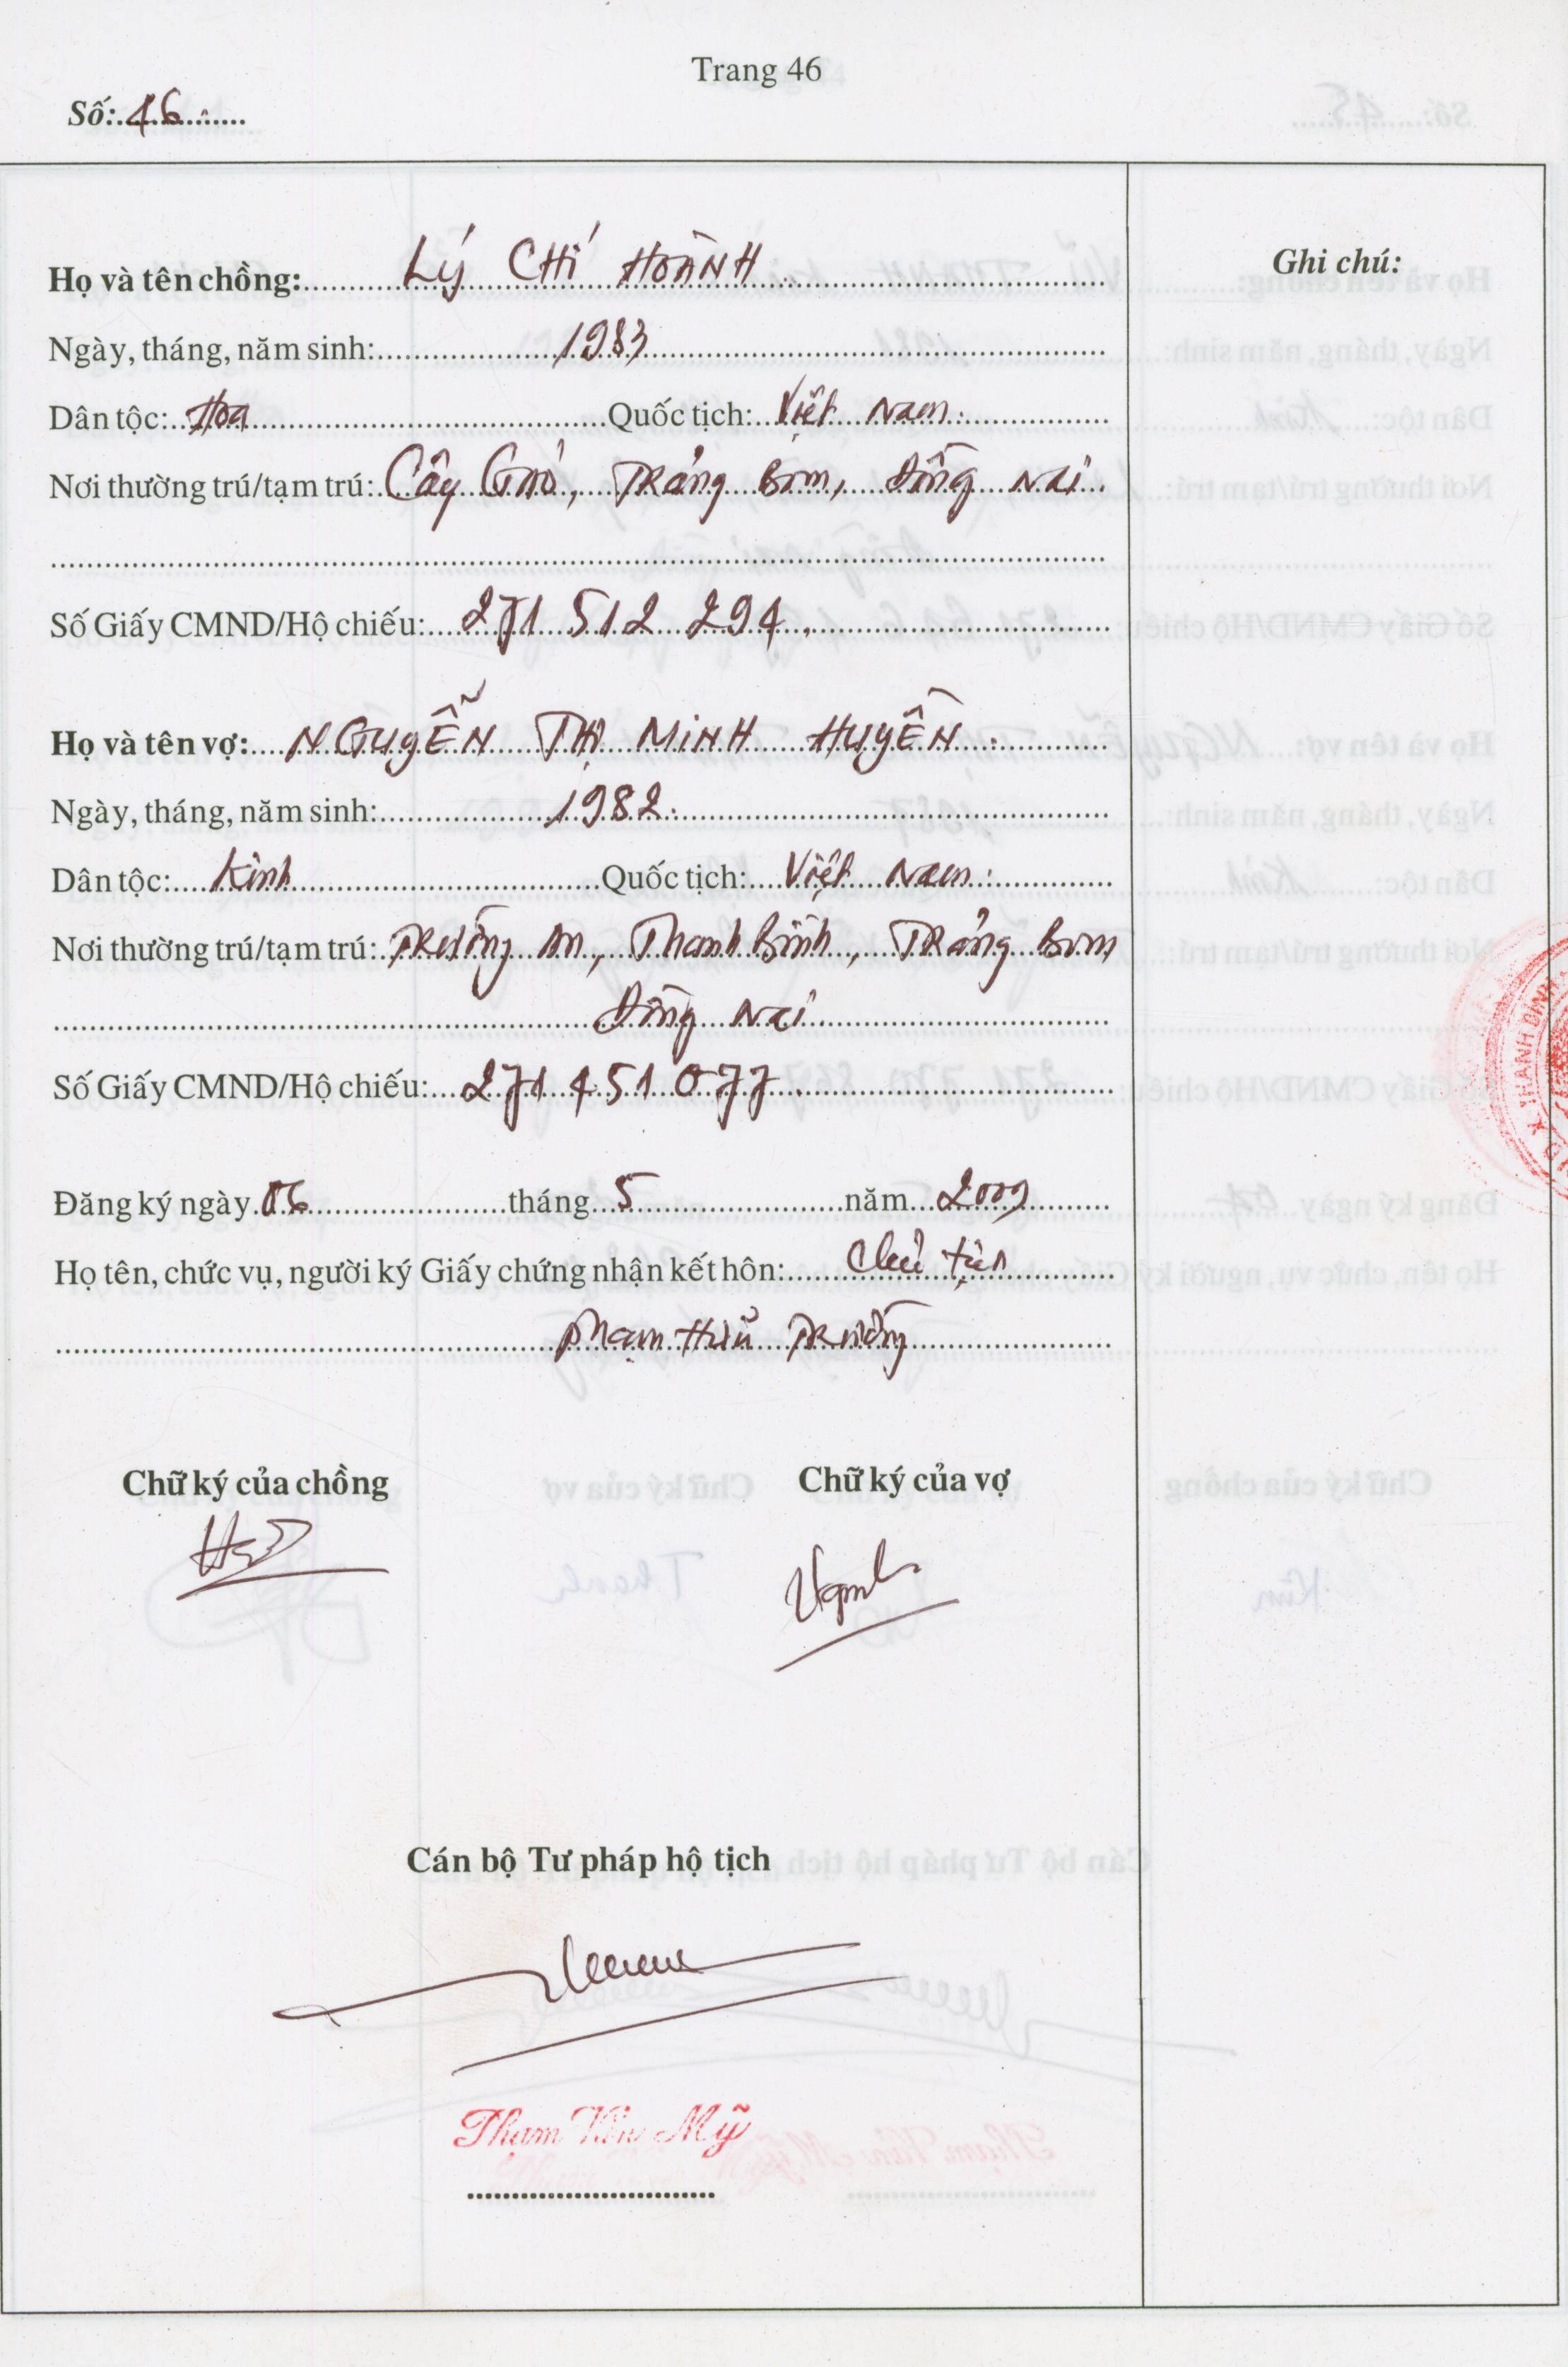 Trang 46
Số: 46
Ghi chú:
Họ và tên chồng: LÝ CHÍ HOÀNH
Ngày, tháng, năm sinh: 1983
Dân tộc: Hoa Quốc tịch: Việt Nam
Nơi thường trú/tạm trú: Cây Gáo, Trảng Bom, Đồng Nai
Số Giấy CMND/Hộ chiếu: 271 512 294
Họ và tên vợ: NGUYỄN THỊ MINH HUYỀN
Ngày, tháng, năm sinh: 1982
Dân tộc: Kinh Quốc tịch: Việt Nam
Nơi thường trú/tạm trú: Trường An, Thanh Bình, Trảng Bom
Đồng Nai
Số Giấy CMND/Hộ chiếu: 271 451 077
Đăng ký ngày 06 tháng 5 năm 2009
Họ tên, chức vụ, người ký Giấy chứng nhận kết hôn: Chủ tịch
Phạm Hữu Trường
Chữ ký của chồng Chữ ký của vợ
Cán bộ Tư pháp hộ tịch
Phạm Mỹ